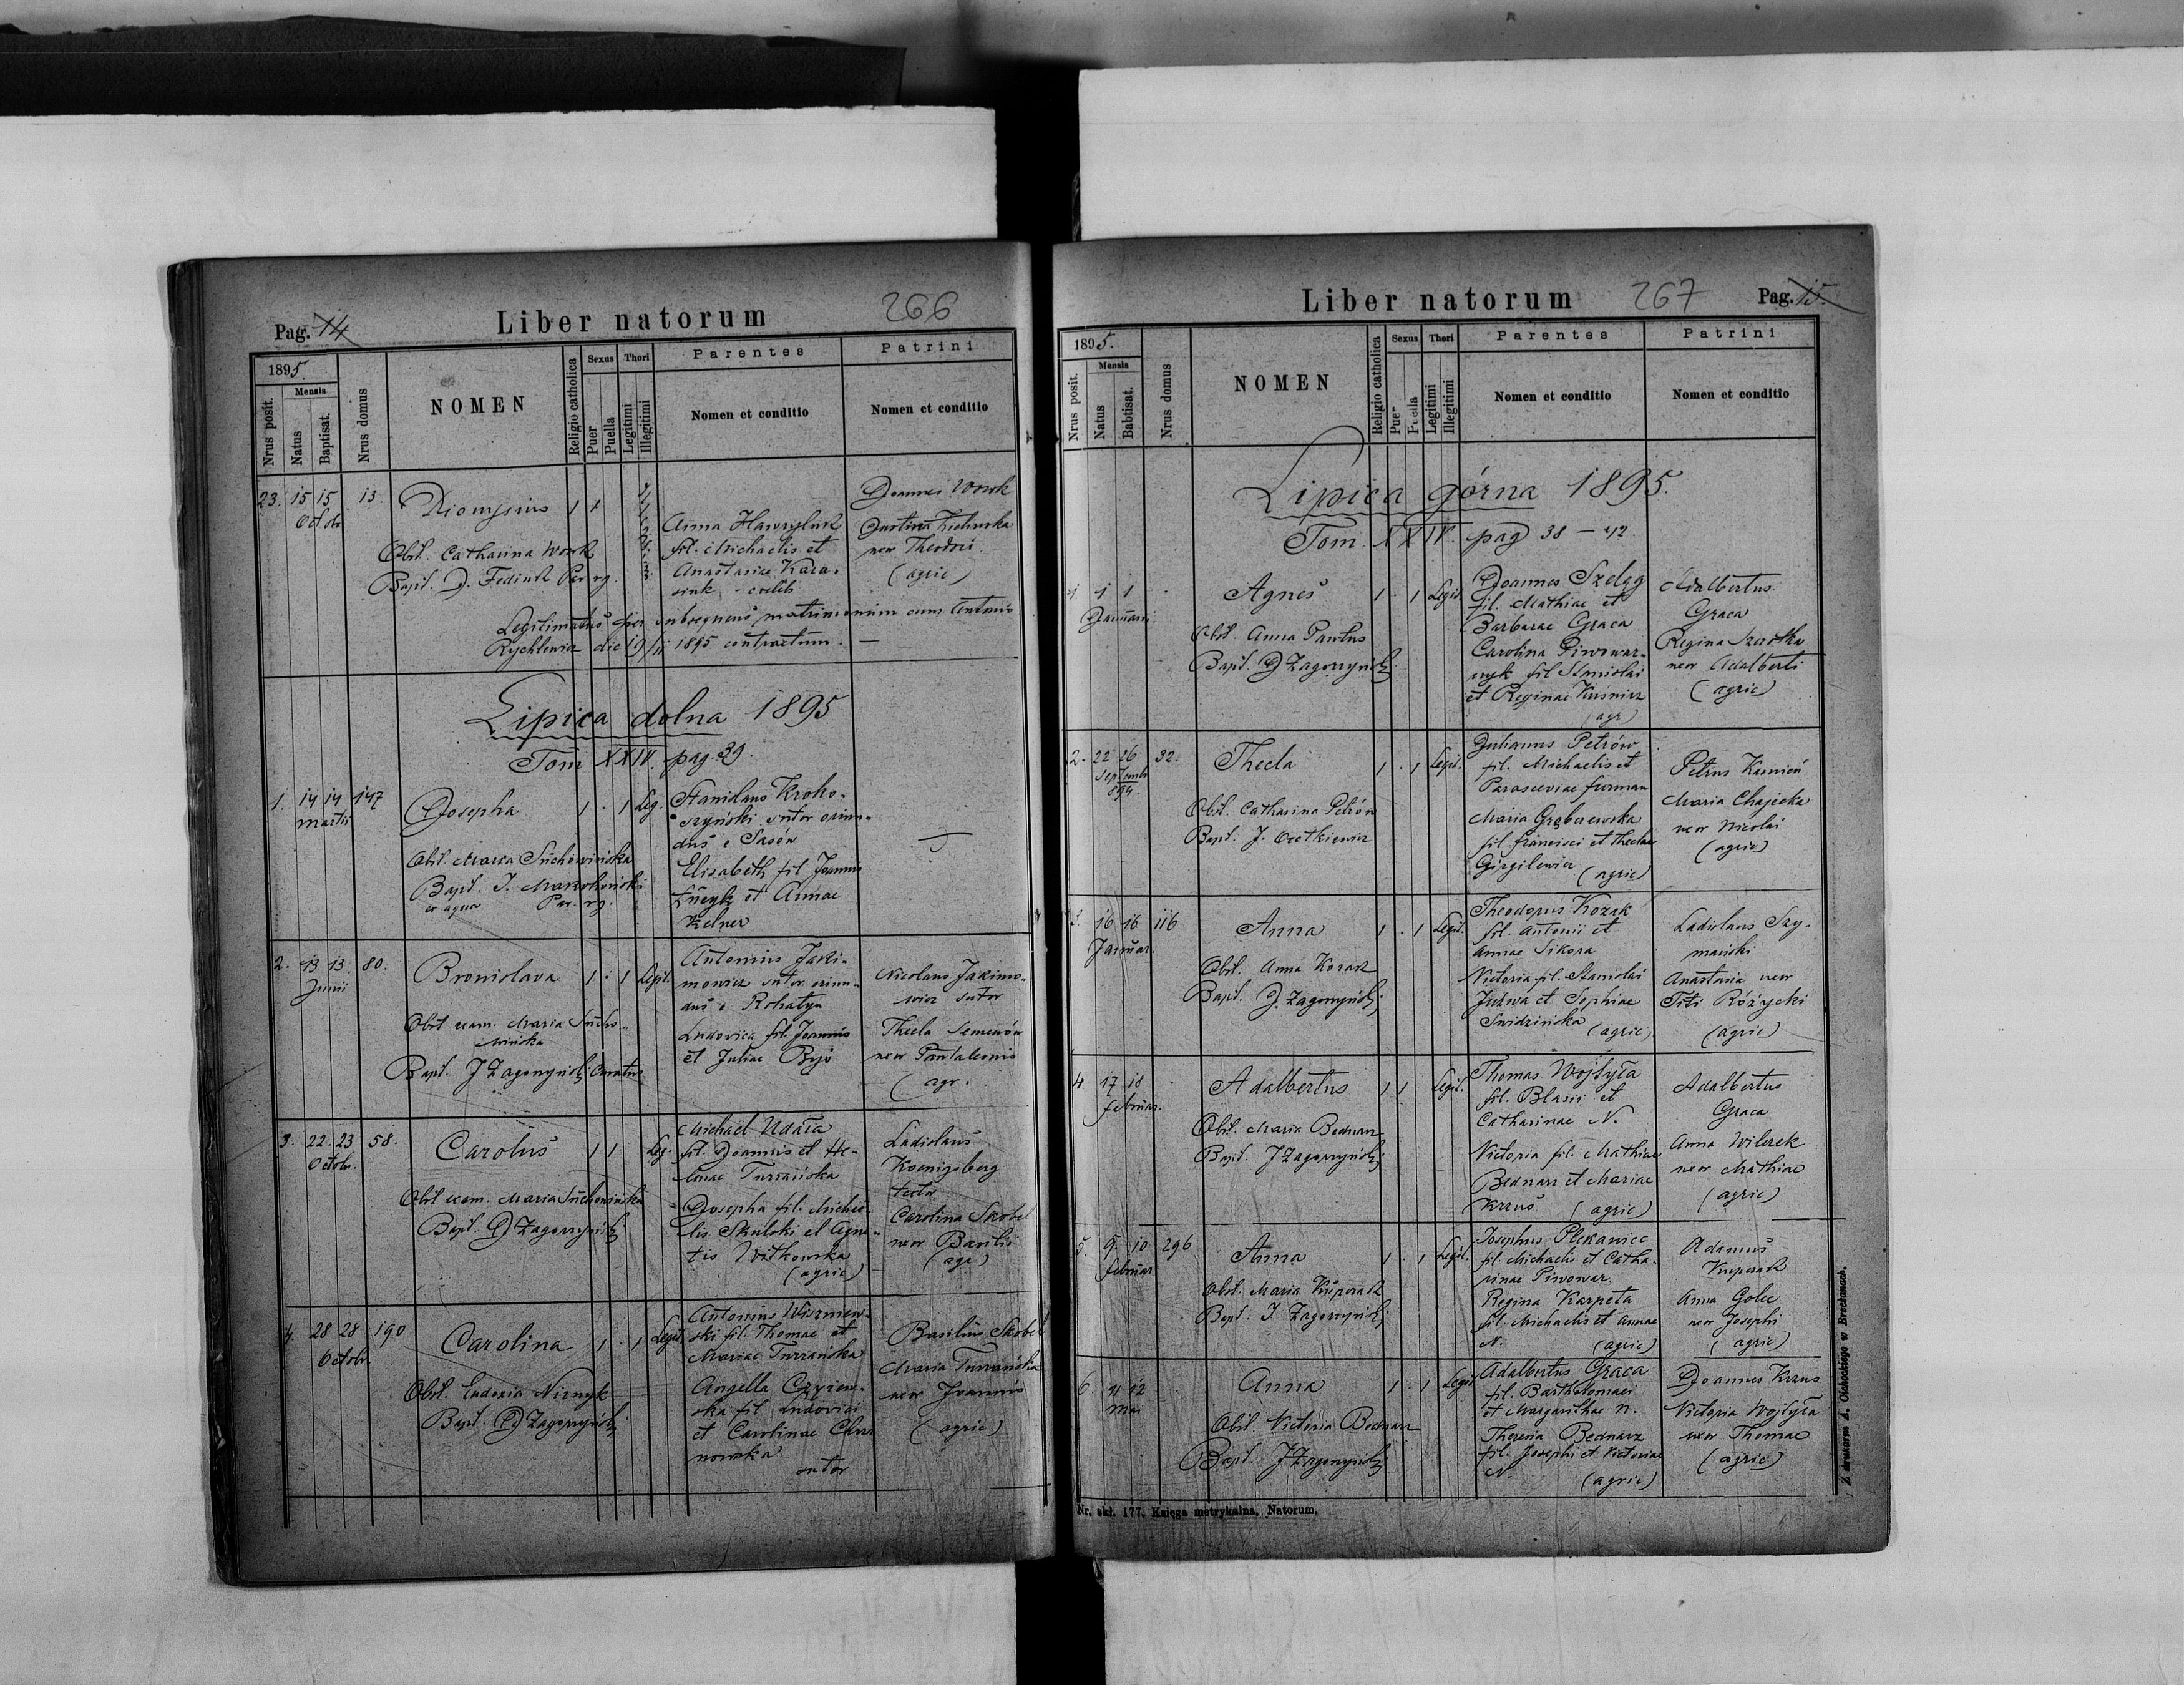 Pag. 14
Liber natorum
266
1895.
Nrus posit.
Mensis
Natus
Baptisat.
Nrus domus
NOMEN
Religio catholica
Sexus
Puer
Puella
Thori
Legitimi
Illegitimi
Parentes
Nomen et conditio
Patrini
Nomen et conditio
23. 15 15 13.
Octobr
Dionysius 1 1
Obst. Catharina Wowk
Bapt. D. Fediuk Par rg.
Anna Hawryluk
fil. Michaelis et
Anastasiae
caelebs
Joannes Wowk
uxor Theodori
(agric)
Legitimatus per subsequens matrimonium cum Antonio
Rychlewicz die 19/11 1895 contractum. —
Lipica dolna 1895
Tom XXIV. pag. 39.
1. 14 14 147
Martii
Josepha 1 . 1 Leg.
Obst. Maria Suchowińska
Bapt. J.
ex aqua Par. rg.
Stanislaus Kroko-
szyński sutor oriun-
dus e Sasów
Elisabeth fil Joannis
et Annae
Kelner
—
2. 13 13. 80.
Junii
Bronislava 1 . 1 Legit.
Obst exam. Maria Sucho-
wińska
Bapt. J Zagorzyński Curatus
Antonius Jaki-
mowicz sutor oriun-
dus e Rohatyn
Ludovica fil. Joannis
et Juliae
Nicolaus Jakimo-
wicz sutor
Thecla Semenów
uxor Pantaleonis
(agr.
3. 22. 23 58.
Octobr.
Carolus 1 1 Leg.
Obst exam. Maria Suchowińska
Bapt. J Zagorzyński
Michael Udała
fil. Joannis et He-
lenae Turzańska
Josepha fil. Michae-
lis Skulski et Agne-
tis Witkowska
(agric)
Ladislaus
Koenigsberg
Carolina Skobel
uxor Basilii
(agr)
4. 28 28 190
Octobr
Carolina 1 . 1 Legit.
Obst. Eudoxia Niznyk
Bapt. J Zagorzyński
Antonius Wiszniew-
ski fil. Thomae et
Mariae Turzańska
Angella
ska fil Ludovici
et Carolinae
nowska
sutor
Basilius Skobel
Maria Turzańska
uxor Joannis
(agric)
Liber natorum
267
Pag. 15.
1895.
Nrus posit.
Mensis
Natus
Babtisat.
Nrus domus
NOMEN
Religio catholica
Sexus
Puer
Puella
Thori
Legitimi
Illegitimi
Parentes
Nomen et conditio
Patrini
Nomen et conditio
Lipica górna 1895.
Tom. XXIV. pag 38 — 42.
1. 1 1 .
Januarii
Agnes 1 . 1 Legit.
Obst. Anna Pantus
Bapt. J Zagorzyński
Joannes Szeląg
fil. Mathiae et
Barbarae Graca
Carolina Piwowar-
czyk fil Stanislai
et Reginae Kusnirz
(agr)
Adalbertus
Graca
Regina
uxor Adalberti
(agric)
2. 22 26 32.
Septemb
894.
Thecla 1 . 1 Legit.
Obst. Catharina Petrów
Bapt. J.
Julianus Petrów
fil. Michaelis et
Parasceviae Furman
Maria
fil Francisci et Theclae
Girgilewicz (agric)
Petrus Kamień
Maria Chajecka
uxor Nicolai
(agric)
3. 16 16 116
Januar.
Anna 1 . 1 Legit.
Obst. Anna Kozak
Bapt. J. Zagorzyński
Theodorus Kozak
fil. Antonii et
Annae Sikora
Victoria fil. Stanislai
Juźwa et Sophiae
Swidzińska (agric)
Ladislaus Szy-
mański
Anastasia uxor
Titi Różycki
(agric)
4 17 18 .
Februar.
Adalbertus 1 1 Legit.
Obst. Maria Bednarz
Bapt. J Zagorzyński
Thomas Wojtyła
fil. Blasii et
Catharinae N.
Victoria fil. Mathiae
Bednarz et Mariae
Krzus (agric)
Adalbertus
Graca
Anna Wilczek
uxor Mathiae
(agric)
5. 9. 10 296
Februar
Anna 1 . 1 Legit.
Obst. Maria Kuperak
Bapt. J Zagorzyński
Josephus Plekaniec
fil. Michaelis et Catha-
rinae Piwowar.
Regina Karpeta
fil. Michaelis et Annae
N. (agric)
Adamus
Kuperak
Anna Golec
uxor Josephi
(agric)
6 11 12
Mai
Anna 1 . 1 Legit
Obst. Victoria Bednarz
Bapt. J Zagorzyński
Adalbertus Graca
fil. Bartholomaei
et Margarithae N.
Theresia Bednarz
fil. Josephi et Victoriae
N. (agric)
Joannes Krzus
Victoria Wojtyła
uxor Thomae
(agric)
Nr. skł. 177. Księga metrykalna. Natorum.
Z drukarni A. Ochockiego w Brzeżanach.